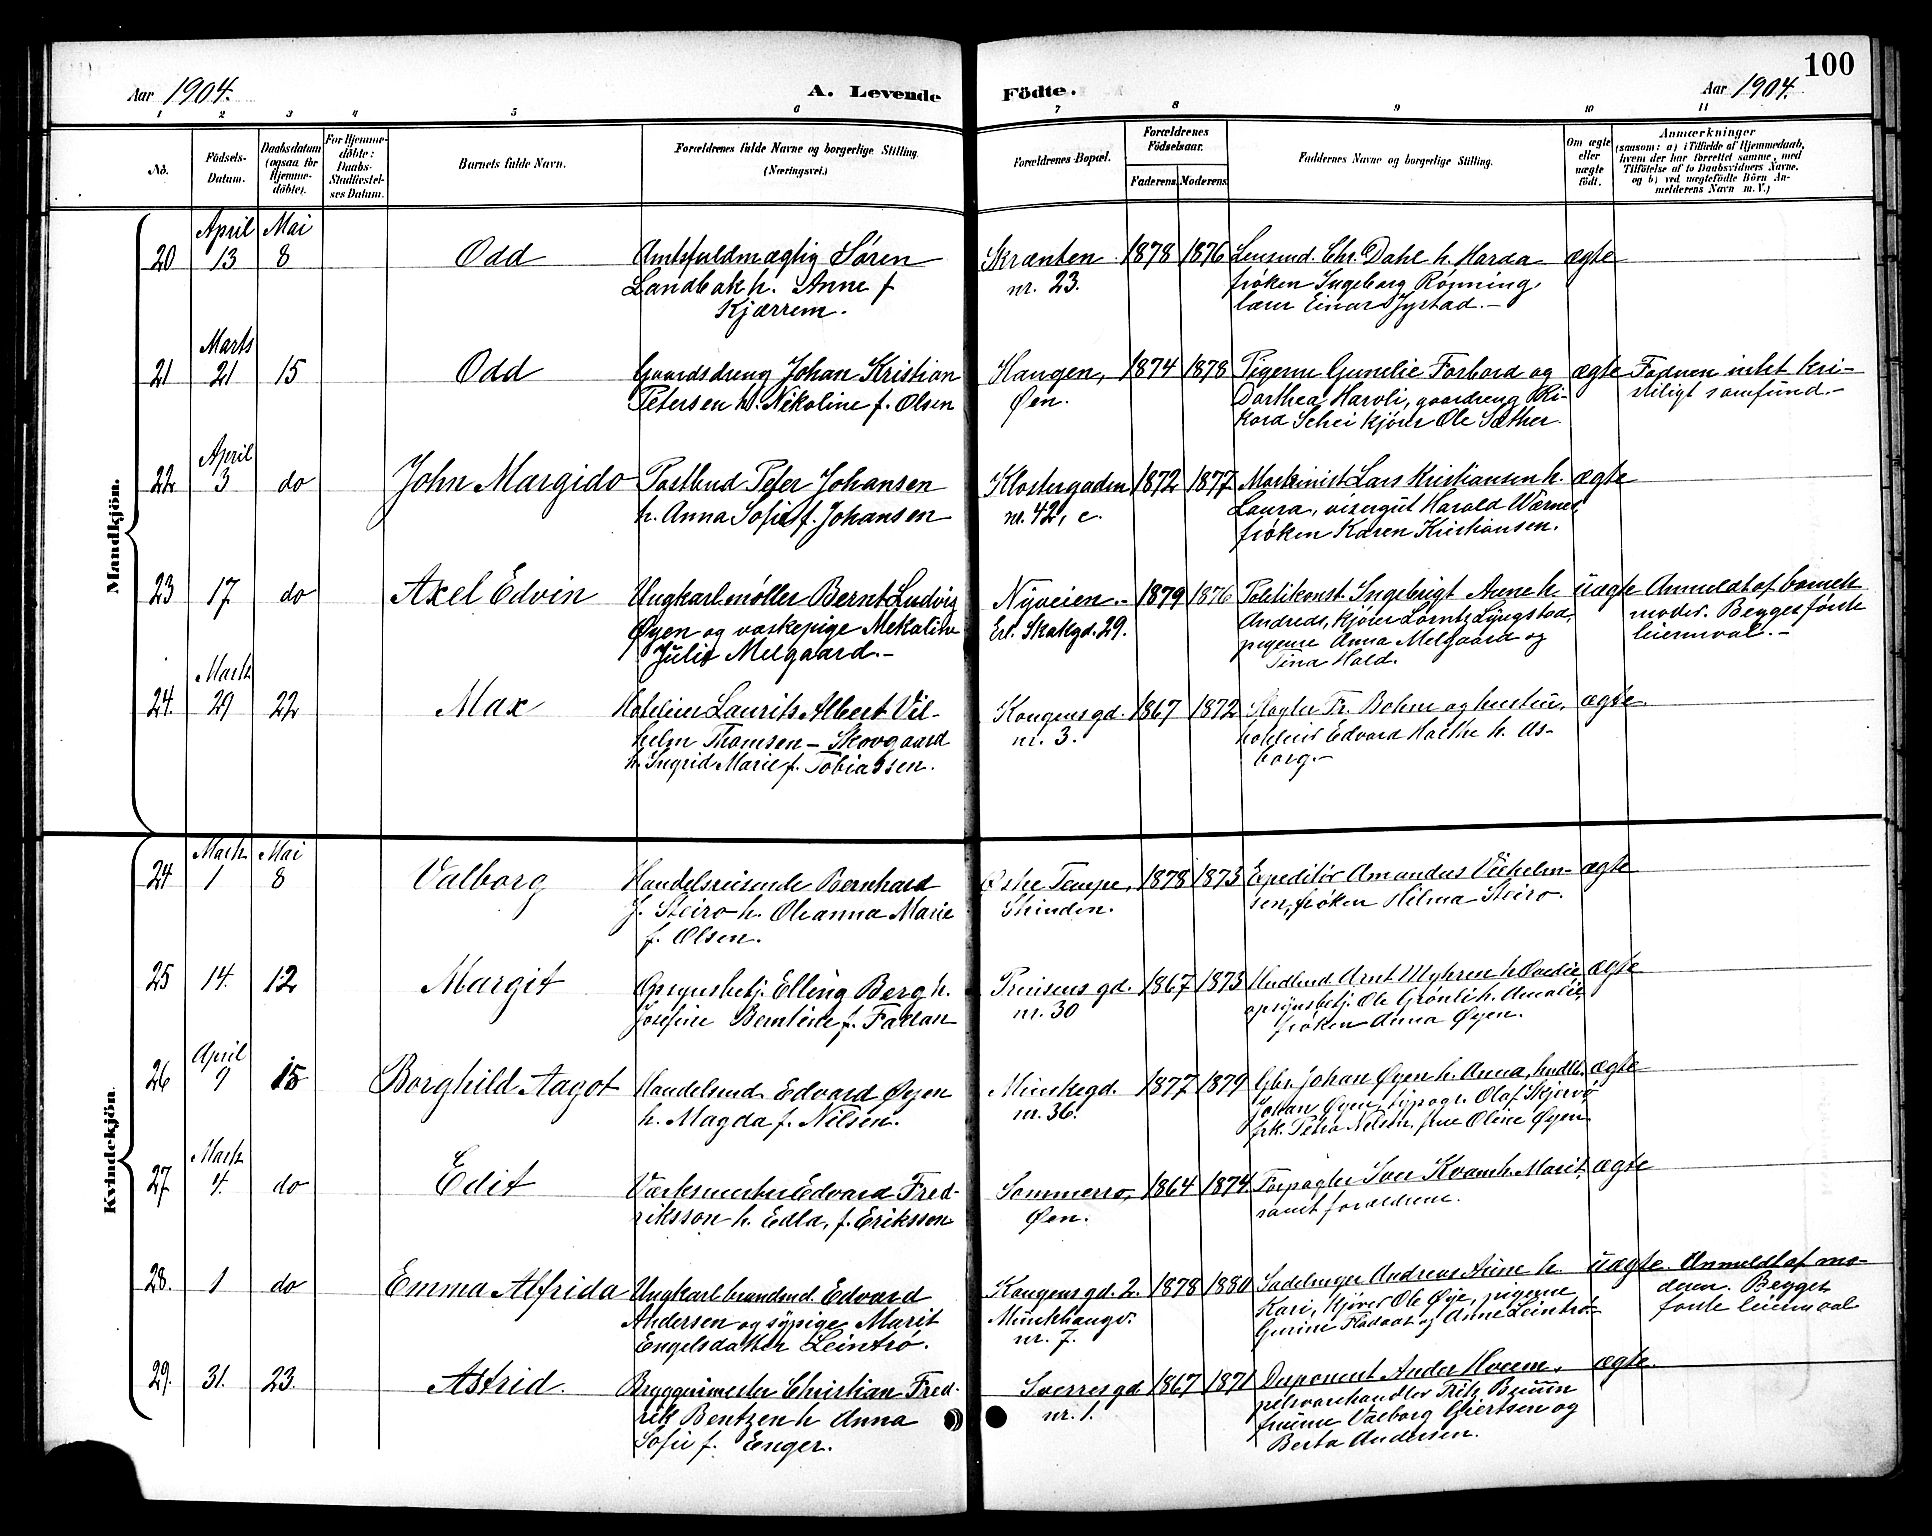 100
Aar 1904.
A. Levende
Födte.
Aar 1904.
1 2 3 4 5 6 7 8 9 10 11
No.
Födsels-Datum.
Daabsdatum (ogsaa for Hjemme-döbte).
For Hjemme-döbte: Daabs-Stadfæstel-ses Datum.
Barnets fulde Navn.
Forældrenes fulde Navne og borgerlige Stilling.
(Næringsvei.)
Forældrenes Bopæl.
Forældrenes Födselsaar.
Faderens. Moderens.
Faddernes Navne og borgerlige Stilling.
Om ægte eller uægte födt.
Anmærkninger
(saasom: a) i Tilfælde af Hjemmedaab,
hvem der har forrettet samme, med
Tilföielse af to Daabsvidners Navne,
og b) ved uægtefödte Börn An-
melderens Navn m. V.)
Mandkjön.
20 April 13 Mai 8 Odd
Amtsfuldmægtig Søren
Landbak h. Anne f
Kjærrem.
Skrænten
nr. 23.
1878 1876
Lensmd. Chr. Dahl h. Harda
frøken Ingeborg Rønning,
lærer Einar Jystad.-
ægte
21 Marts 21 15 Odd
Gaardsdreng Johan Kristian
Petersen h. Nikoline f. Olsen
Haugen,
Øen.
1874 1878
Pigerne Gunelie Forbord og
Dorthea Harvli, gaardreng Ri-
kard Schei kjører Ole Sæther
ægte
Faderen intet kri-
stiligt samfund.-
22 April 3 do John Margido
Postbud Peter Johansen
h. Anna Sofie f. Johansen
Klostergaden
nr. 42, c.
1872 1877
Maskinist Lars Kristiansen h.
Laura, visergut Harald Wærnes
frøken Karen Kristiansen.
ægte
23 17 do Axel Edvin
Ungkarl møller Bernt Ludvig
Øyen og vaskepige Mekaline
Julie Melgaard.-
Nyveien.-
Erl. Skakgd. 29.
1879 1876
Politikonst. Ingebrigt Aune h.
Andrede, kjører Lorntz Lyngstad,
pigerne Anna Melgaard og
Tina Hald.
uægte
Anmeldt af barnets
moder. Begges første
leiermaal.-
24. Marts 29 22 Max
Hoteleier Laurits Albert Vil-
helm Thomsen-Skovgaard
h. Ingrid Marie f. Tobiassen.
Kongensgd.
nr. 3.
1867 1872
Slagter Fr. Bohne og hustru,
hoteleier Edvard Halthe h. As-
borg.-
ægte
Kvindekjön.
24 Marts 1 Mai 8 Valborg
Handelsreisende Bernhard
J. Steiro h. Oleanna Marie
f. Olsen.
Østre Tempe,
Strinden.
1878 1873
Expeditør Amandus Vilhelm-
sen, frøken Hilma Steiro.
ægte
25 14. 12 Margit
Opsynsbetj. Elling Berg h.
Josefine Berntine f. Fallan
Prinsensgd.
nr. 30
1867 1873
Hudlmd Arnt Myhren h.
opsynsbetj. Ole Grønli h. Amalie,
frøken Anna Øyen.
ægte
26 April 9 15 Borghild Aagot
Handelsmd. Edvard Øyen
h. Magda f. Nilsen.
Munkegd.
nr. 36.
1877 1879
Gbr. Johan Øyen h. Anna, hndlb.
Johan Øyen, typogr. Olaf Skjervø
frk. Petra Nilsen, frue Oline Øyen
ægte
27 Marts 4. do Edit
Værksmester Edvard Fred-
riksson h. Edla, f. Eriksson
Sommerro,
Øen.
1864 1874.
Forpagter Iver Kvam h. Marit,
samt forældrene.
ægte
28. 1 do Emma Alfrida
Ungkarl brandmd. Edvard
Andersen og sypige Marit
Engelsdatter Leintrø.
Kongensgd. 2.
Munkhaugv.
nr. 7.
1878 1880
Sadelmager Andreas Aune h.
Kari, kjører Ole Øye, pigerne
Gurine Fladaat og Anne Leintrø.
uægte.
Anmeldt af mo-
deren. Begges
første leiermaal
29. 31. 23. Astrid.
Bryggerimester Christian Fred-
rik Bentzen h Anna
Sofie f. Enger.
Sverresgd
nr. 1.
1867 1871
Disponent Ander Hveem,
pelsvarehandler Fritz Bruun
fruerne Valborg Giertsen og
Berta Andersen.
ægte.